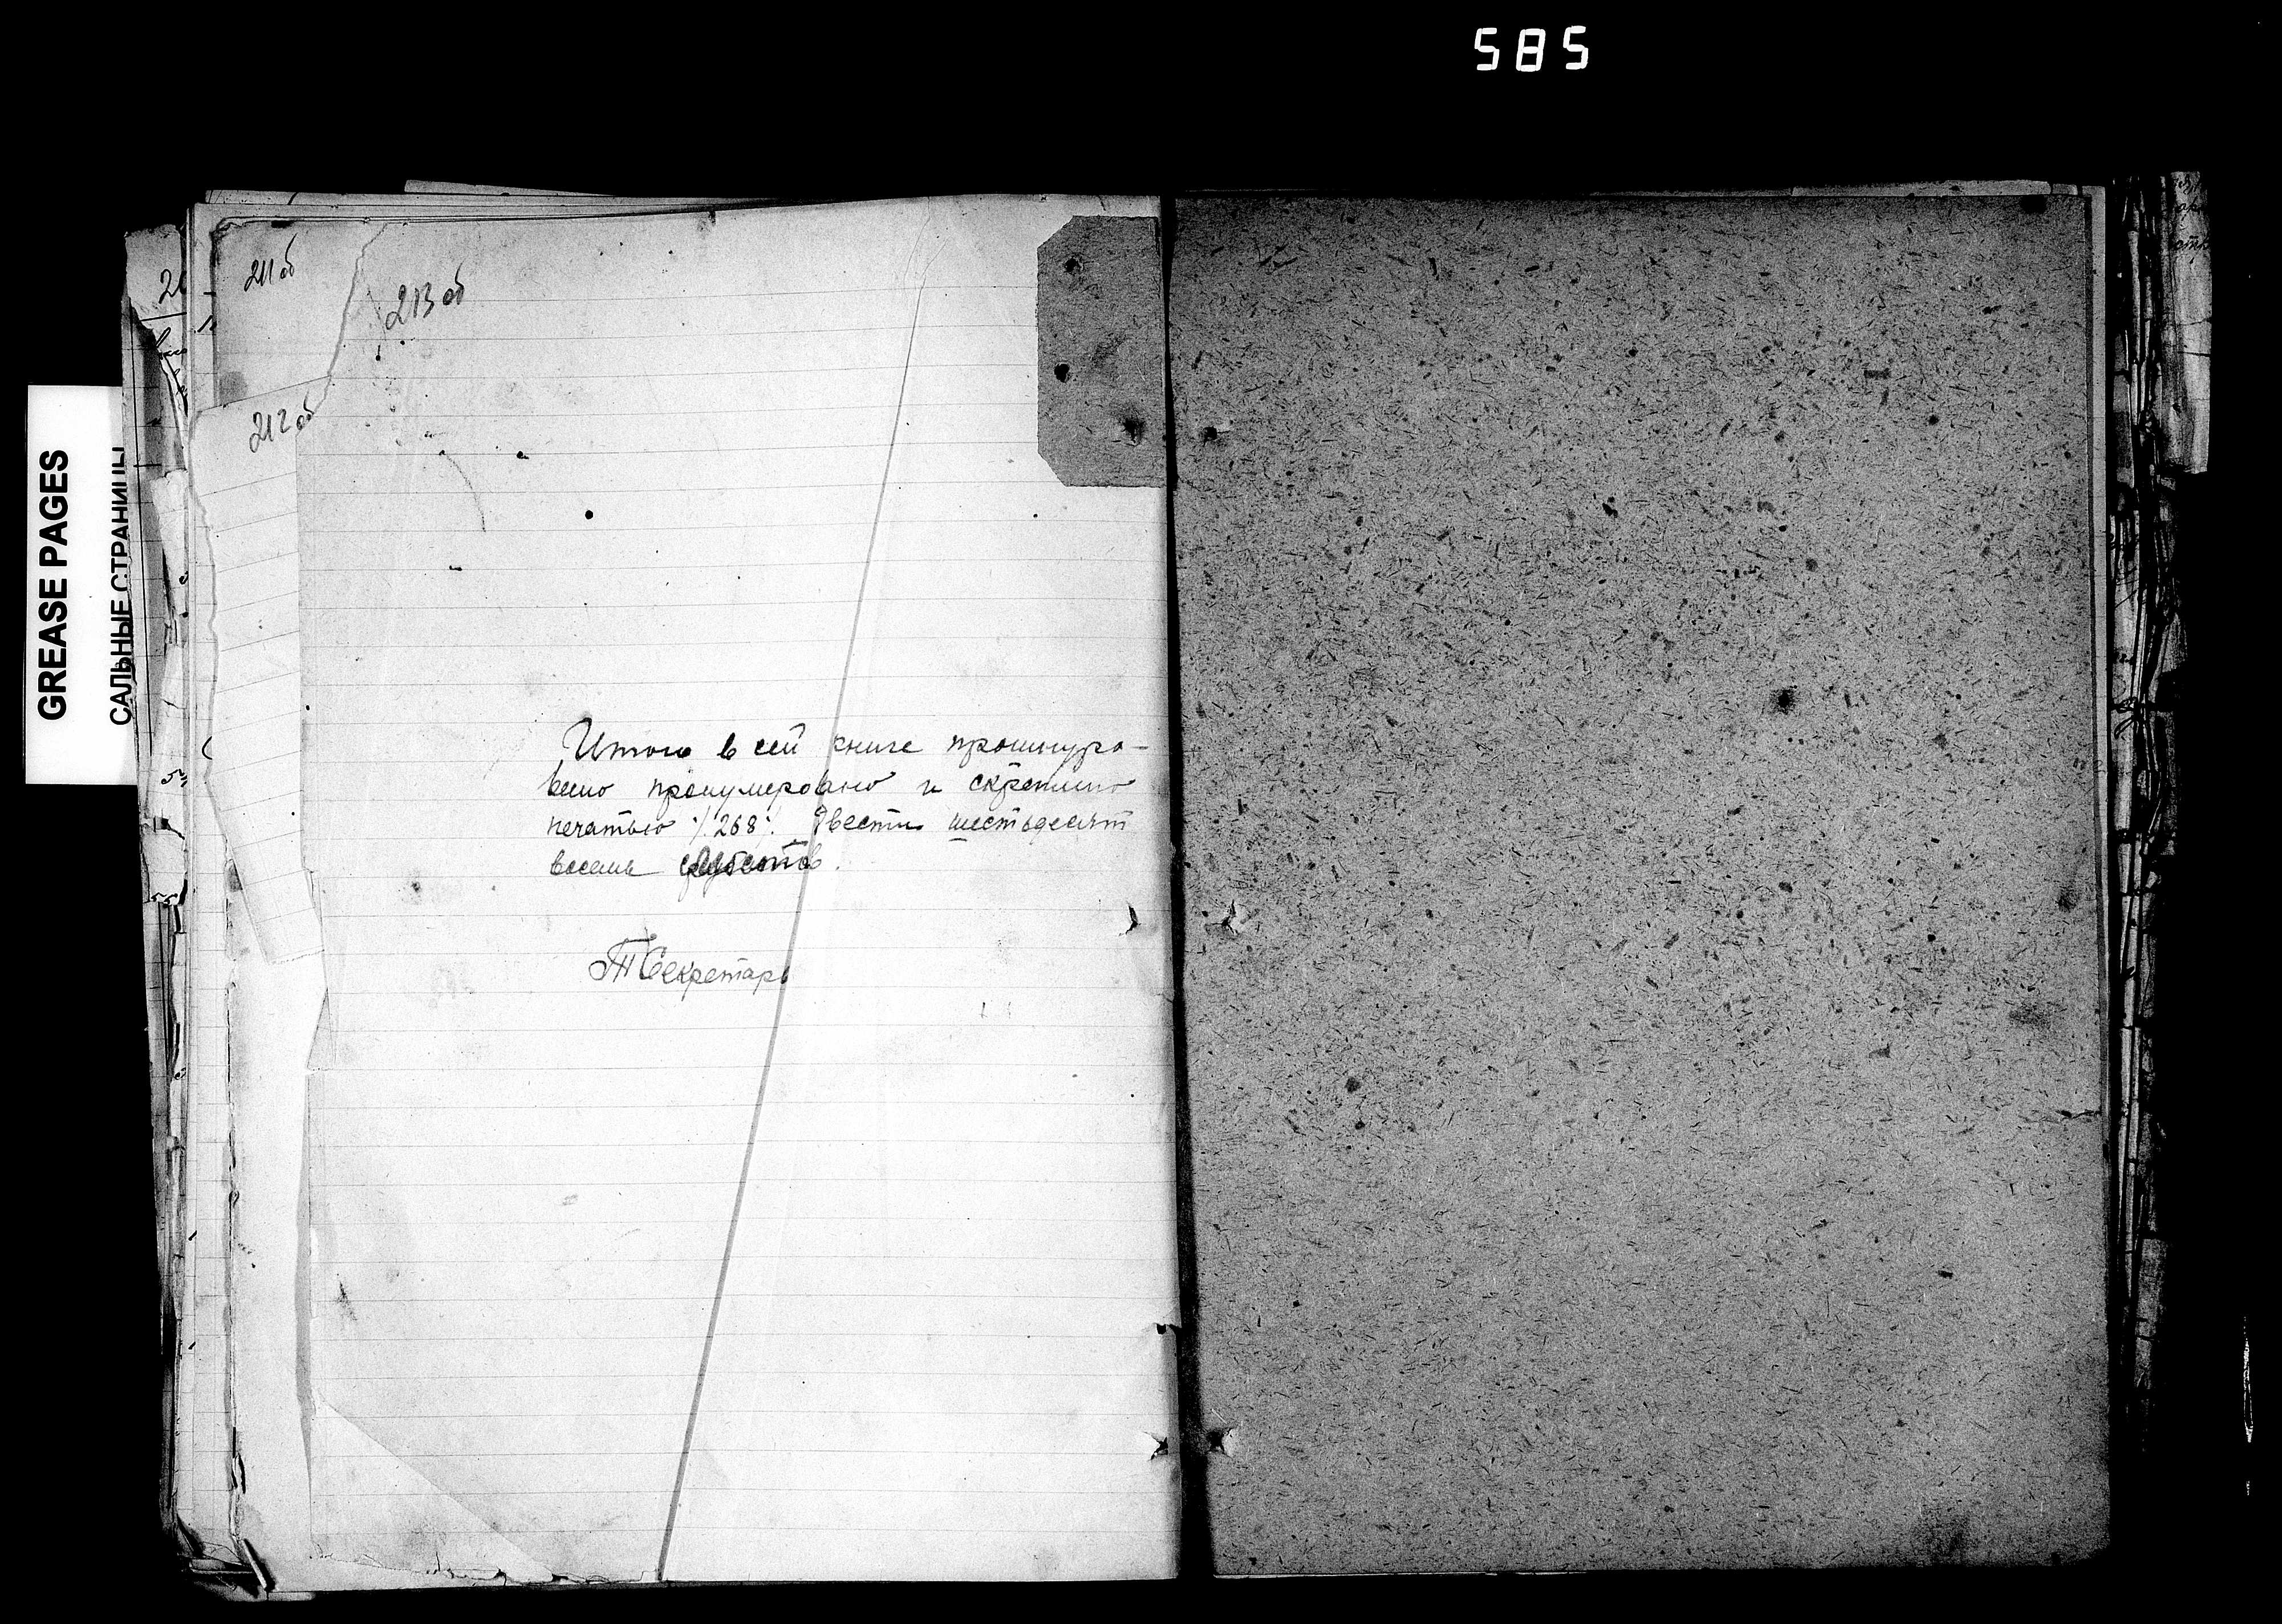 585
GREASE PAGES
САЛЬНЫЕ СТРАНИЦЫ
211 об
213 об
212 об
Итого в сей книге прошнуро-
вено пронумеровано и скреплено
печатью /268/. Двести шестьдесят
восемь листов.
Секретарь